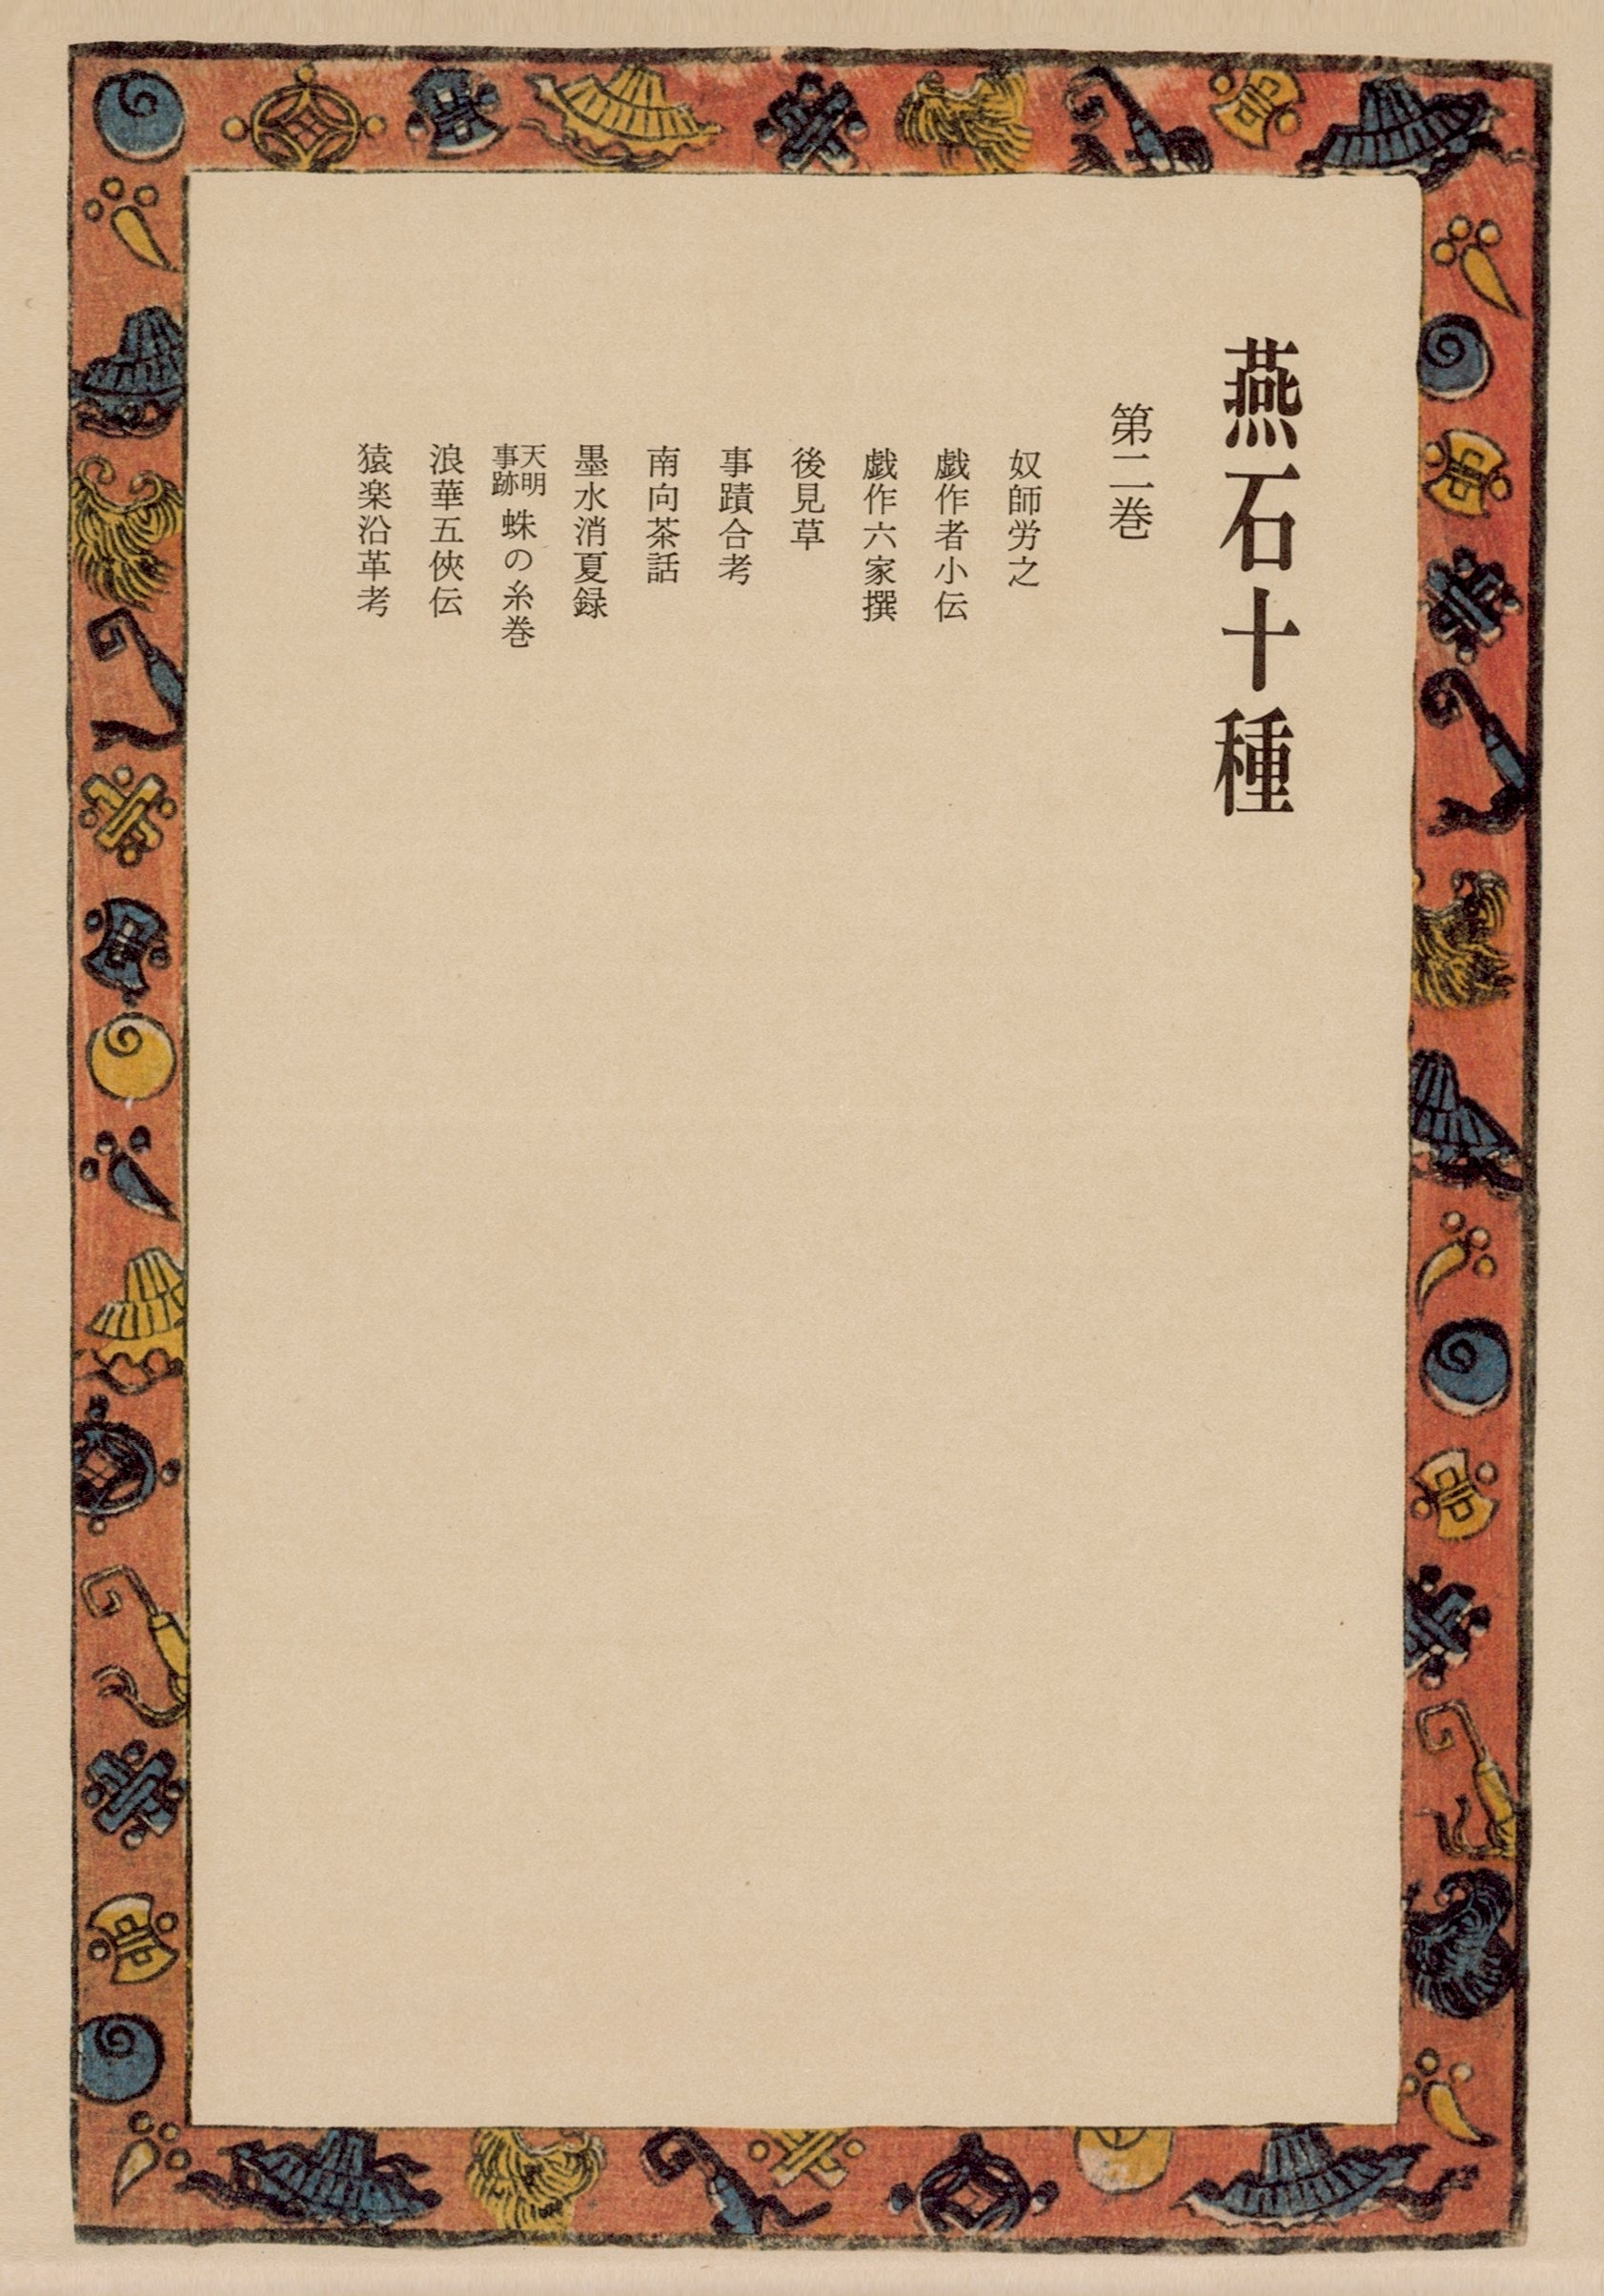 燕石十種
第二巻
奴師労之
戯作者小伝
戯作六家撰
後見草
事蹟合考
南向茶話
墨水消夏録
天明事跡 蛛の糸巻
浪華五俠伝
猿楽沿革考